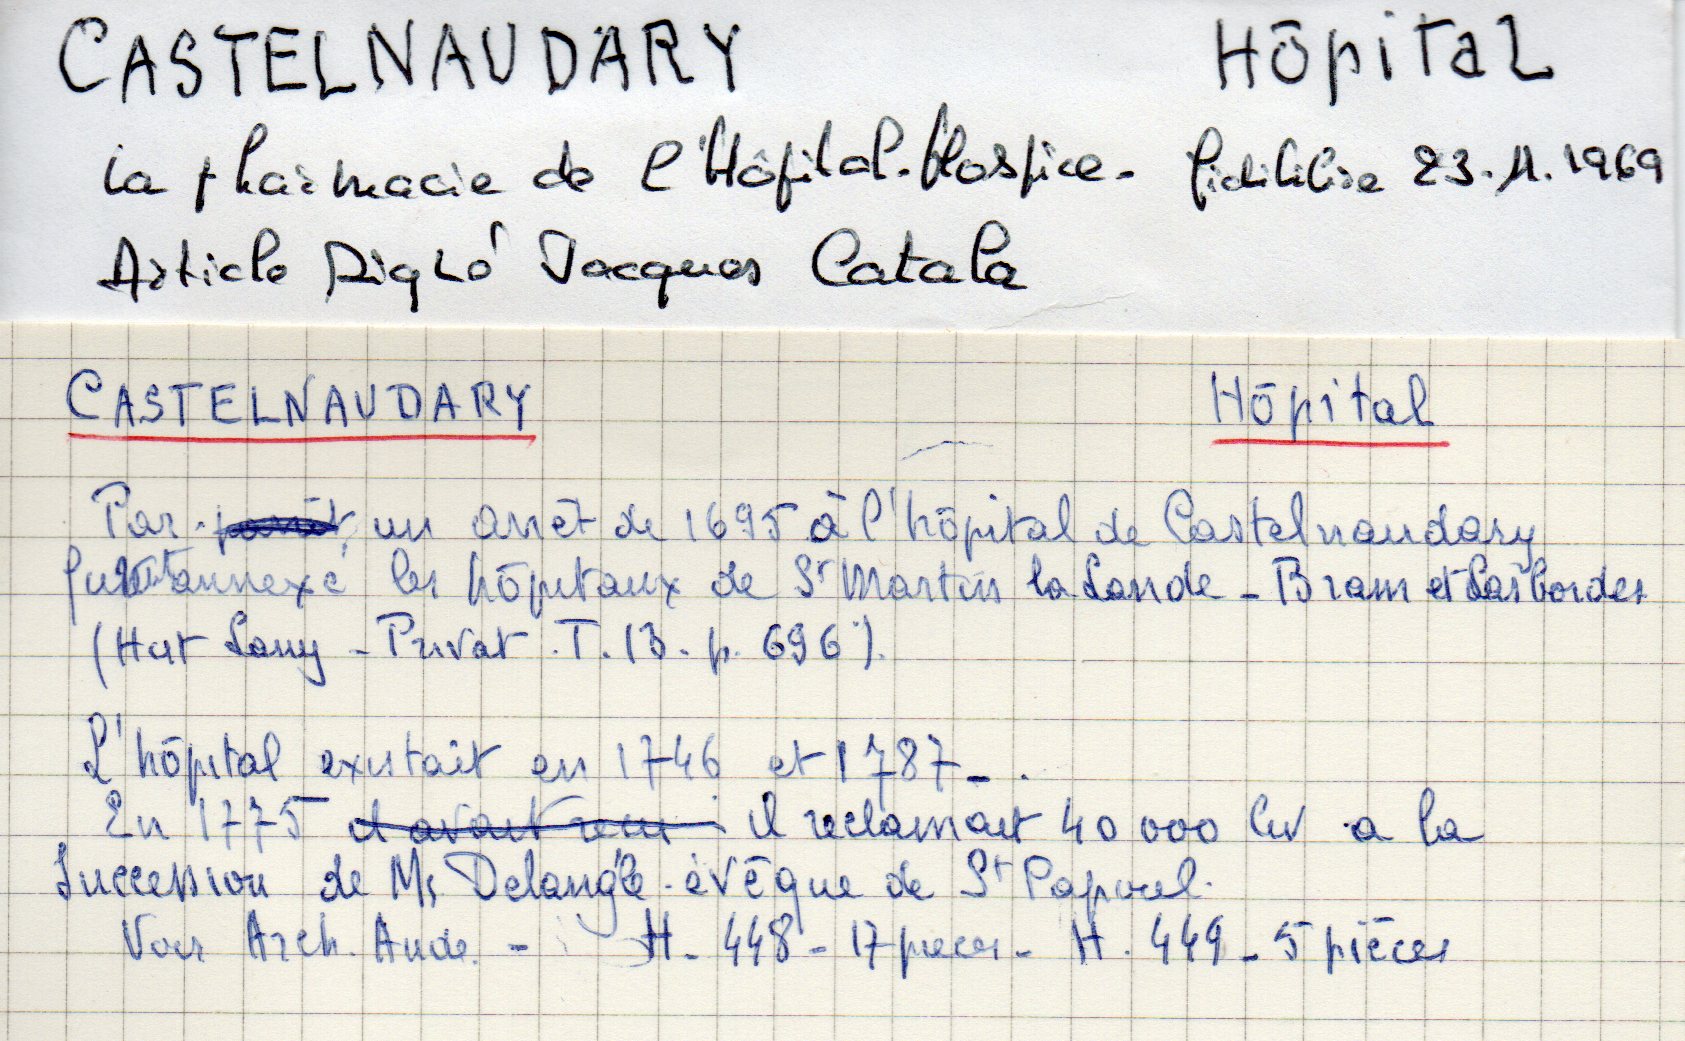 CASTELNAUDARY Hôpital
La pharmacie de l'Hôpital-Hospice - 23.11.1969
Article signé Jacques Catala
CASTELNAUDARY Hôpital
Par un arrêt de 1695 à l'hôpital de Castelnaudary
furent annexé les hôpitaux de St Martin la Lande - Bram et Lasbordes
(Hist Lang - Privat. T. 13. p. 696).
L'hôpital existait en 1746 et 1787 - .
En 1775 il avait reçu il réclamait 40 000 liv a la
Succession de Mr Delangle évêque de St Papoul.
Voir Arch. Aude. - H. 448 - 17 pièces - H. 449 - 5 pièces